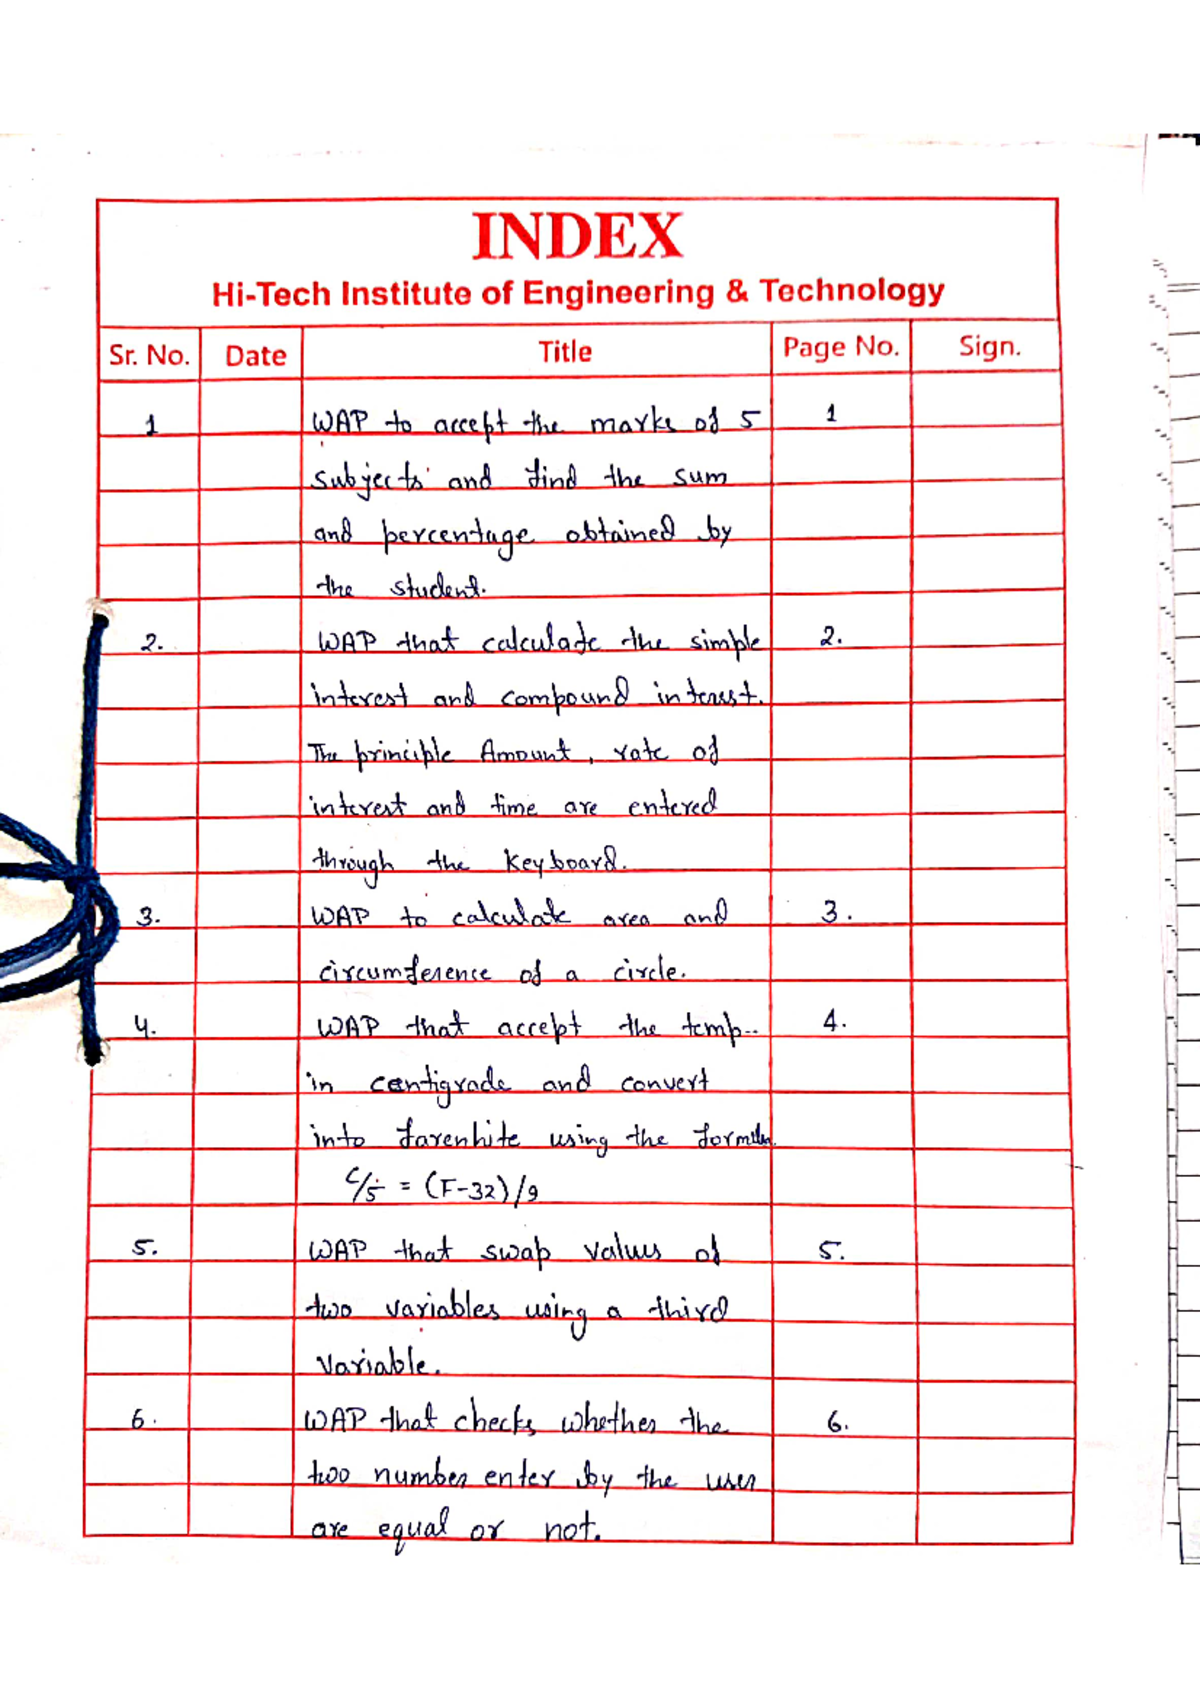 INDEX
Hi-Tech Institute of Engineering & Technology
Sr. No. Date Title Page No. Sign.
1 WAP to accept the marks of 5 1
subjects and find the sum
and percentage obtained by
the student.
2. WAP that calculate the simple 2.
interest and compound interest.
The principle Amount, rate of
interest and time are entered
through the keyboard.
3. WAP to calculate area and 3.
circumference of a circle.
4. WAP that accept the temp.. 4.
in centigrade and convert
into farenhite using the formula.
C/5 = (F-32)/9
5. WAP that swap values of 5.
two variables using a third
variable.
6. WAP that checks whether the 6.
two number enter by the user
are equal or not.